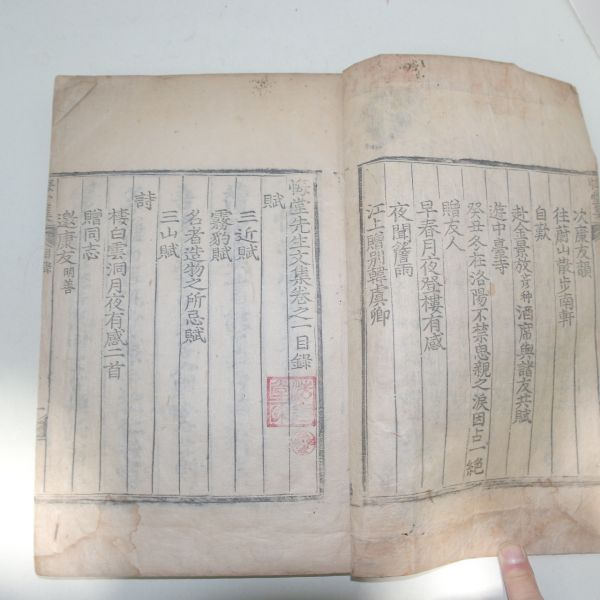 次康友韻
往蔚山散步南軒
自歎
赴金景放酒席與諸友共賦
遊中臺寺
癸丑冬在洛陽不禁思親之淚因占一絕
贈友人
早春月夜登樓有感
夜聞簷雨
江上贈別韓虞卿
悔堂先生文集卷之一目錄
賦
三近賦
霧豹賦
名者造物之所忌賦
三山賦
詩
棲白雲洞月夜有感二首
贈同志
邀康友明善